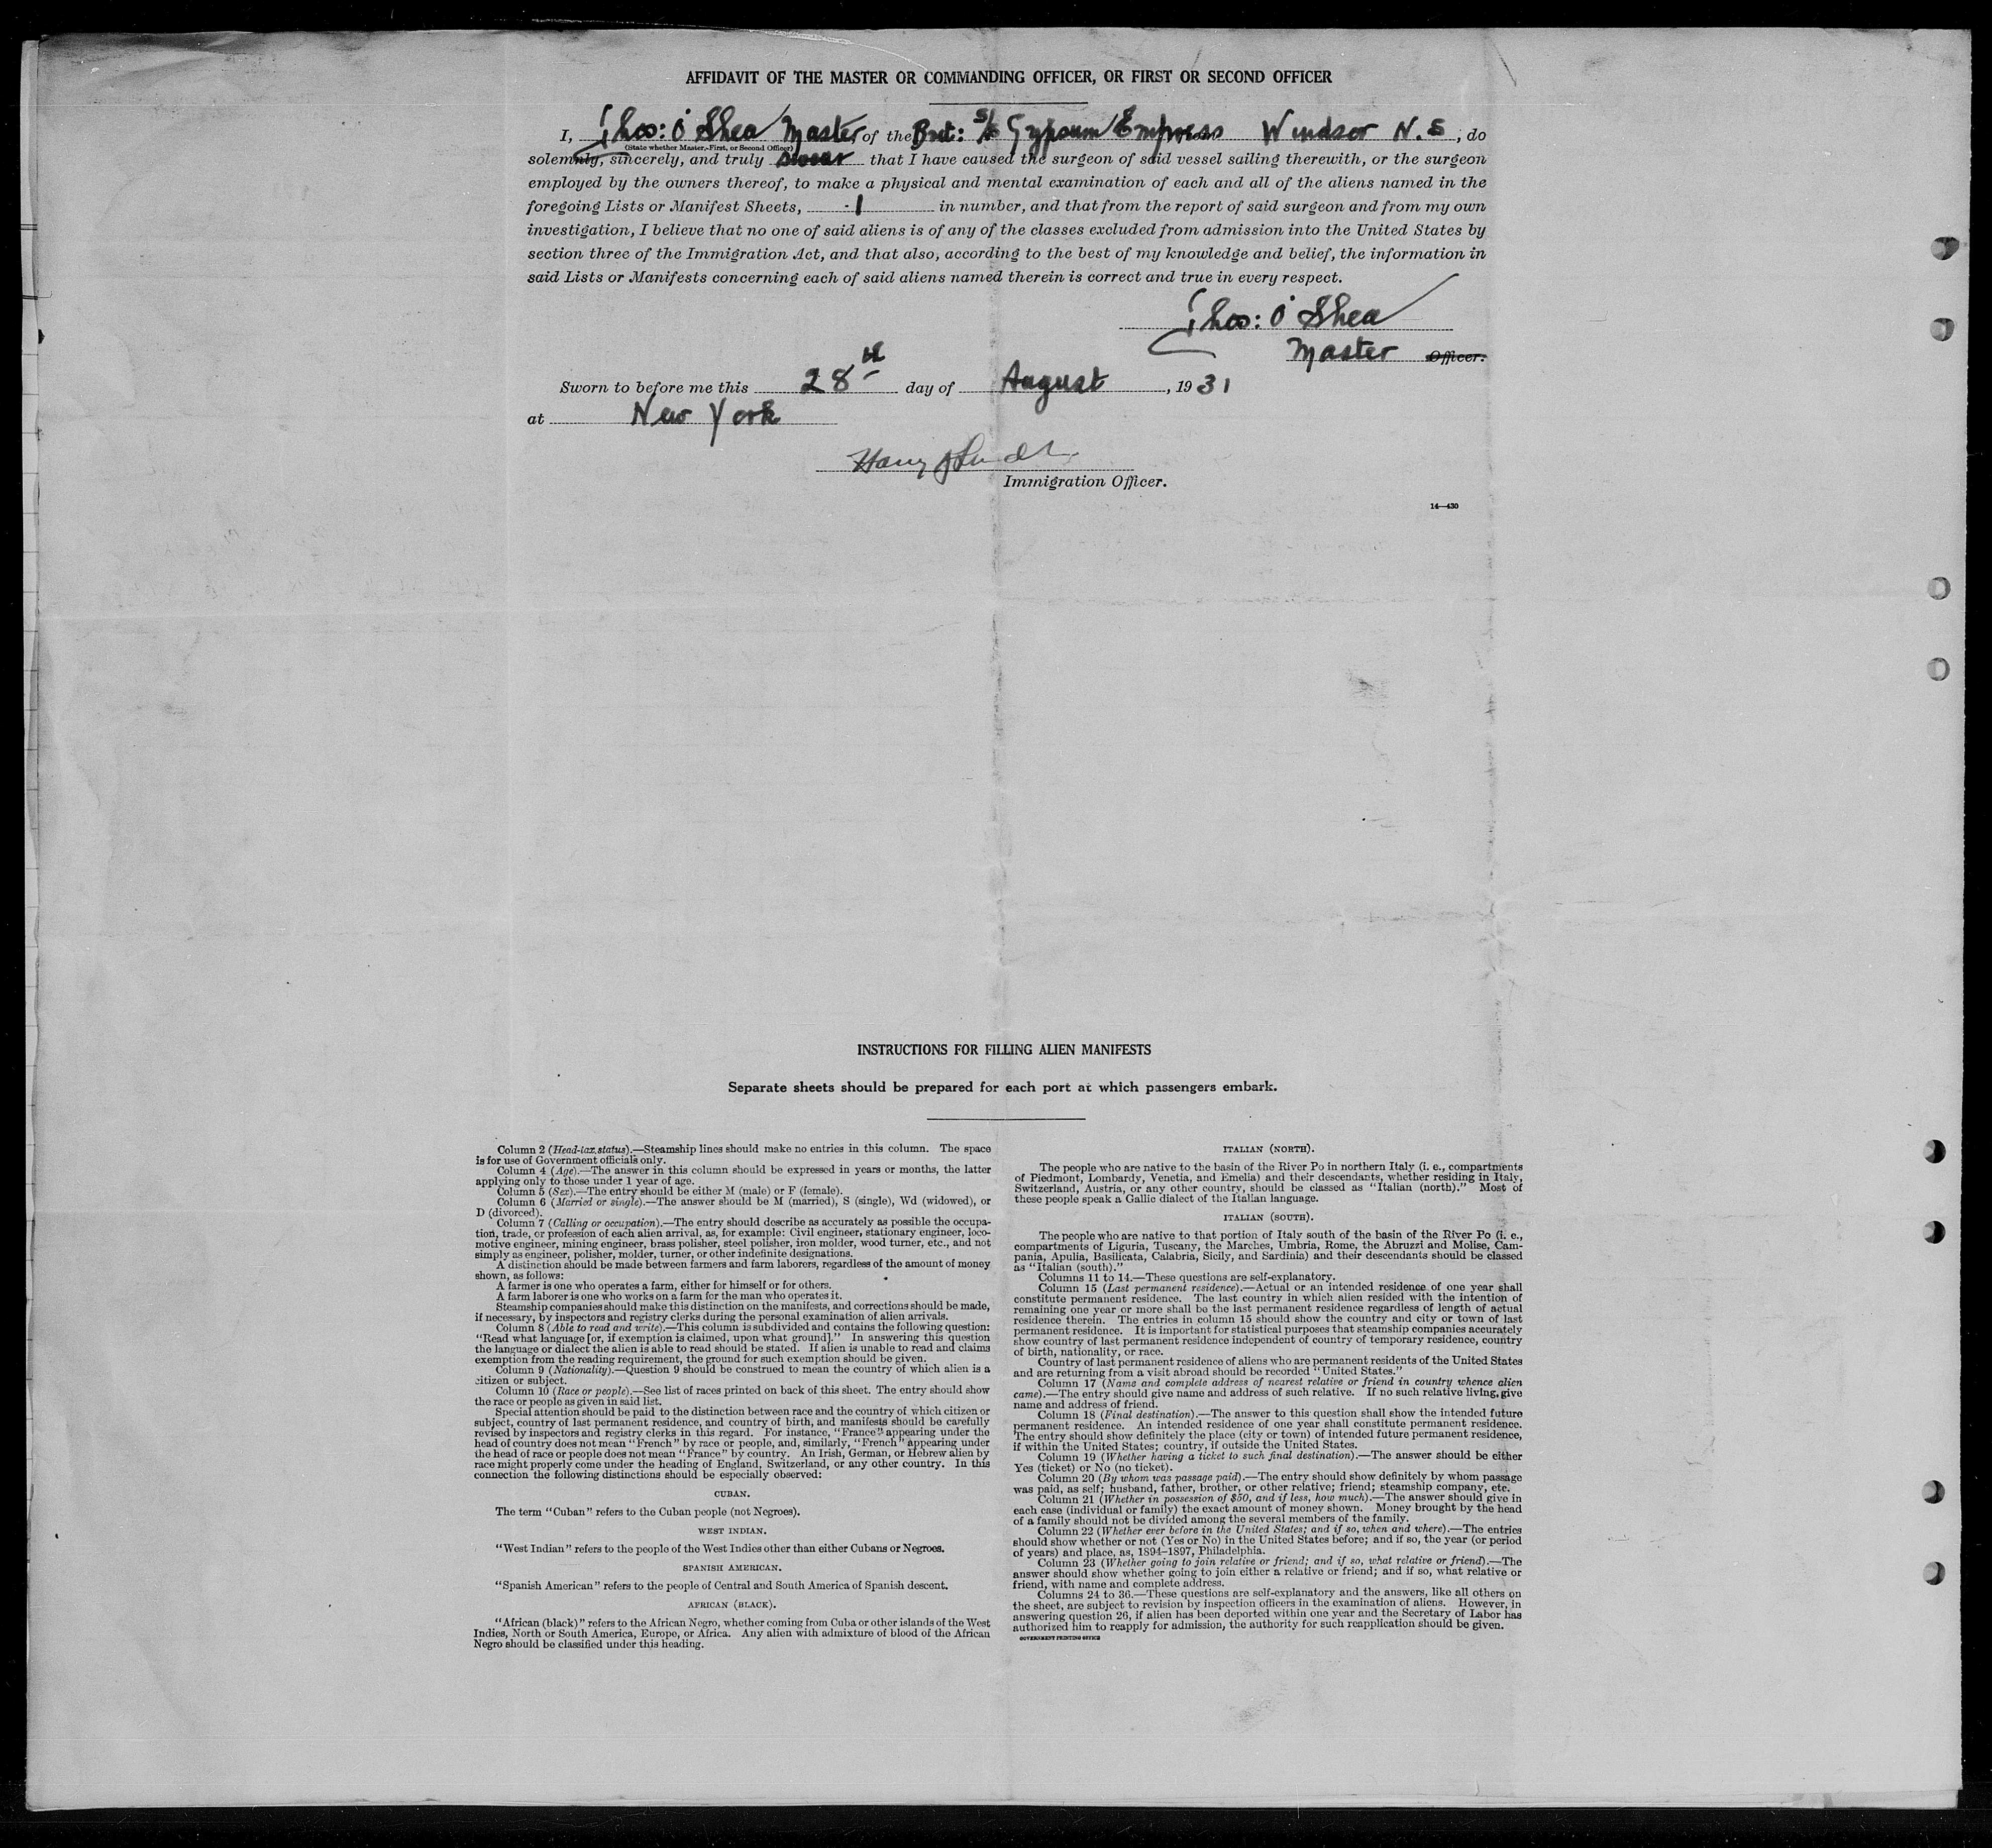 AFFIDAVIT OF THE MASTER OR COMMANDING OFFICER, OR FIRST OR SECOND OFFICER
I, Thos: O'Shea Master of the Brit: S/S Gypsum Empress from Windsor N.S, do
(State whether Master, First, or Second Officer)
solemnly, sincerely, and truly swear that I have caused the surgeon of said vessel sailing therewith, or the surgeon
employed by the owners thereof, to make a physical and mental examination of each and all of the aliens named in the
foregoing Lists or Manifest Sheets, 1 in number, and that from the report of said surgeon and from my own
investigation, I believe that no one of said aliens is of any of the classes excluded from admission into the United States by
section three of the Immigration Act, and that also, according to the best of my knowledge and belief, the information in
said Lists or Manifests concerning each of said aliens named therein is correct and true in every respect.
Thos: O'Shea
Master Officer.
Sworn to before me this 28th day of August, 1931
at New York
Harry
Immigration Officer.
14—430
INSTRUCTIONS FOR FILLING ALIEN MANIFESTS
Separate sheets should be prepared for each port at which passengers embark.
Column 2 (Head-tax status).—Steamship lines should make no entries in this column. The space
is for use of Government officials only.
Column 4 (Age).—The answer in this column should be expressed in years or months, the latter
applying only to those under 1 year of age.
Column 5 (Sex).—The entry should be either M (male) or F (female).
Column 6 (Married or single).—The answer should be M (married), S (single), Wd (widowed), or
D (divorced).
Column 7 (Calling or occupation).—The entry should describe as accurately as possible the occupa-
tion, trade, or profession of each alien arrival, as, for example: Civil engineer, stationary engineer, loco-
motive engineer, mining engineer, brass polisher, steel polisher, iron molder, wood turner, etc., and not
simply as engineer, polisher, molder, turner, or other indefinite designations.
A distinction should be made between farmers and farm laborers, regardless of the amount of money
shown, as follows:
A farmer is one who operates a farm, either for himself or for others.
A farm laborer is one who works on a farm for the man who operates it.
Steamship companies should make this distinction on the manifests, and corrections should be made,
if necessary, by inspectors and registry clerks during the personal examination of alien arrivals.
Column 8 (Able to read and write).—This column is subdivided and contains the following question:
"Read what language [or, if exemption is claimed, upon what ground]." In answering this question
the language or dialect the alien is able to read should be stated. If alien is unable to read and claims
exemption from the reading requirement, the ground for such exemption should be given.
Column 9 (Nationality).—Question 9 should be construed to mean the country of which alien is a
citizen or subject.
Column 10 (Race or people).—See list of races printed on back of this sheet. The entry should show
the race or people as given in said list.
Special attention should be paid to the distinction between race and the country of which citizen or
subject, country of last permanent residence, and country of birth, and manifests should be carefully
revised by inspectors and registry clerks in this regard. For instance, "France" appearing under the
head of country does not mean "French" by race or people, and, similarly, "French" appearing under
the head of race or people does not mean "France" by country. An Irish, German, or Hebrew alien by
race might properly come under the heading of England, Switzerland, or any other country. In this
connection the following distinctions should be especially observed:
CUBAN.
The term "Cuban" refers to the Cuban people (not Negroes).
WEST INDIAN.
"West Indian" refers to the people of the West Indies other than either Cubans or Negroes.
SPANISH AMERICAN.
"Spanish American" refers to the people of Central and South America of Spanish descent.
AFRICAN (BLACK).
"African (black)" refers to the African Negro, whether coming from Cuba or other islands of the West
Indies, North or South America, Europe, or Africa. Any alien with admixture of blood of the African
Negro should be classified under this heading.
ITALIAN (NORTH).
The people who are native to the basin of the River Po in northern Italy (i. e., compartments
of Piedmont, Lombardy, Venetia, and Emelia) and their descendants, whether residing in Italy,
Switzerland, Austria, or any other country, should be classed as "Italian (north)." Most of
these people speak a Gallic dialect of the Italian language.
ITALIAN (SOUTH).
The people who are native to that portion of Italy south of the basin of the River Po (i. e.,
compartments of Liguria, Tuscany, the Marches, Umbria, Rome, the Abruzzi and Molise, Cam-
pania, Apulia, Basilicata, Calabria, Sicily, and Sardinia) and their descendants should be classed
as "Italian (south)."
Columns 11 to 14.—These questions are self-explanatory.
Column 15 (Last permanent residence).—Actual or an intended residence of one year shall
constitute permanent residence. The last country in which alien resided with the intention of
remaining one year or more shall be the last permanent residence regardless of length of actual
residence therein. The entries in column 15 should show the country and city or town of last
permanent residence. It is important for statistical purposes that steamship companies accurately
show country of last permanent residence independent of country of temporary residence, country
of birth, nationality, or race.
Country of last permanent residence of aliens who are permanent residents of the United States
and are returning from a visit abroad should be recorded "United States."
Column 17 (Name and complete address of nearest relative or friend in country whence alien
came).—The entry should give name and address of such relative. If no such relative living, give
name and address of friend.
Column 18 (Final destination).—The answer to this question shall show the intended future
permanent residence. An intended residence of one year shall constitute permanent residence.
The entry should show definitely the place (city or town) of intended future permanent residence,
if within the United States; country, if outside the United States.
Column 19 (Whether having a ticket to such final destination).—The answer should be either
Yes (ticket) or No (no ticket).
Column 20 (By whom was passage paid).—The entry should show definitely by whom passage
was paid, as self; husband, father, brother, or other relative; friend; steamship company, etc.
Column 21 (Whether in possession of $50, and if less, how much).—The answer should give in
each case (individual or family) the exact amount of money shown. Money brought by the head
of a family should not be divided among the several members of the family.
Column 22 (Whether ever before in the United States; and if so, when and where).—The entries
should show whether or not (Yes or No) in the United States before; and if so, the year (or period
of years) and place, as, 1894–1897, Philadelphia.
Column 23 (Whether going to join relative or friend; and if so, what relative or friend).—The
answer should show whether going to join either a relative or friend; and if so, what relative or
friend, with name and complete address.
Columns 24 to 36.—These questions are self-explanatory and the answers, like all others on
the sheet, are subject to revision by inspection officers in the examination of aliens. However, in
answering question 26, if alien has been deported within one year and the Secretary of Labor has
authorized him to reapply for admission, the authority for such reapplication should be given.
GOVERNMENT PRINTING OFFICE